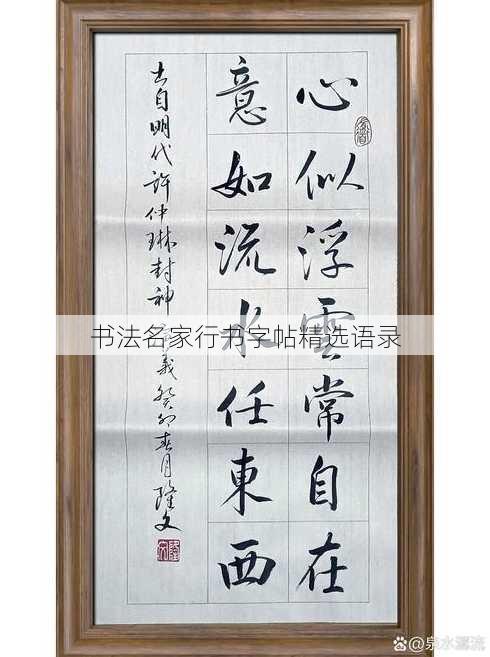 心似浮雲常自在
意如流水任東西
自明代许仲琳封神義癸卯春月隆文
书法名家行书字帖精选语录
@泉水流